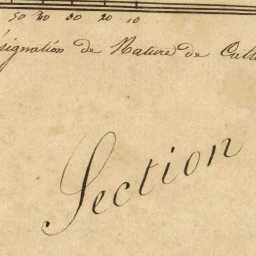 50 40 30 20 10
ésignation de Nature de Cult
Section